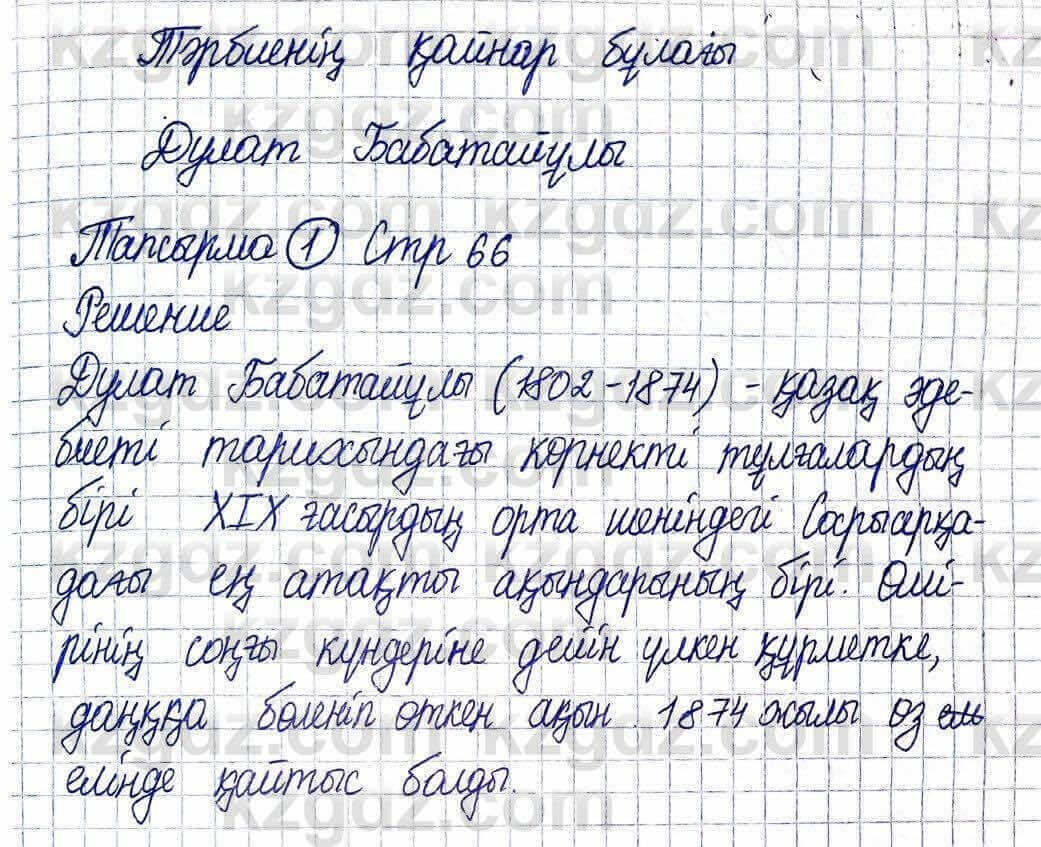 Тәрбиенің қайнар бұлағы
Дулат Бабатайұлы
Тапсырма 1 Стр 66
Решение
Дулат Бабатайұлы (1802-1874) - қазақ әде-
биеті тарихындағы көрнекті тұлғалардың
бірі XIX ғасырдың орта шеніндегі Сарыарқа-
дағы ең атақты ақындарының бірі. Өмі-
рінің соңғы күндеріне дейін үлкен құрметке,
даңққа бөленіп өткен ақын. 1874 жылы өз
елінде қайтыс болды.